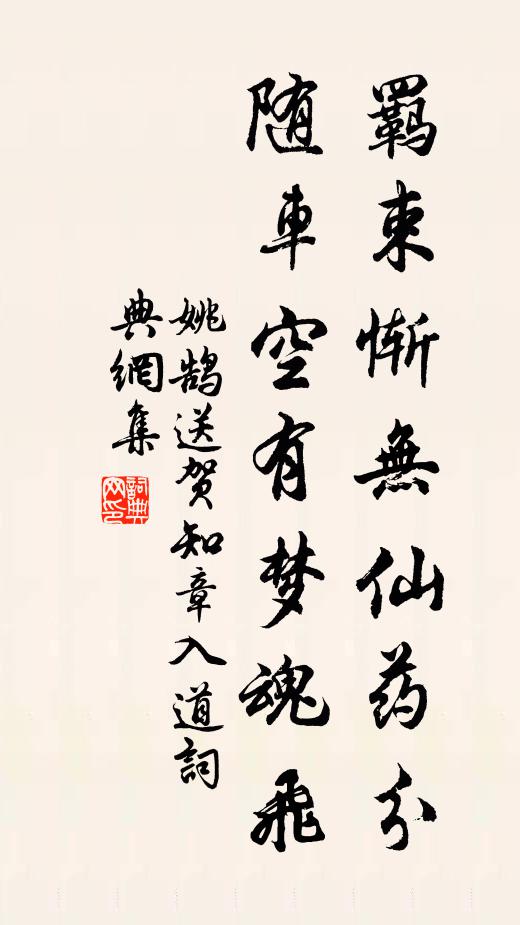 羈束慚無仙药分
随車空有梦魂飛
姚鹄送贺知章入道詞
典網集
詞典网印